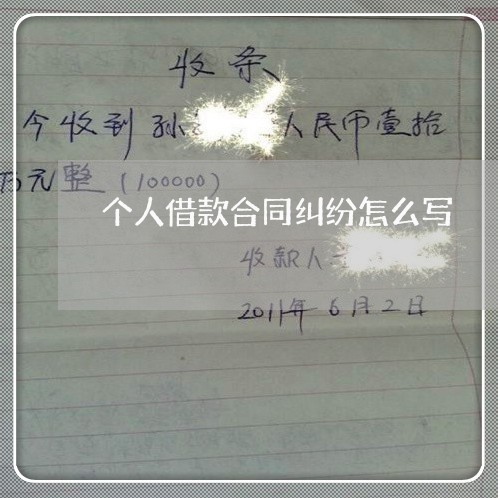 收条
今收到孙 人民币壹拾
万元整(100000)
个人借款合同纠纷怎么写
收款人
2011年6月2日